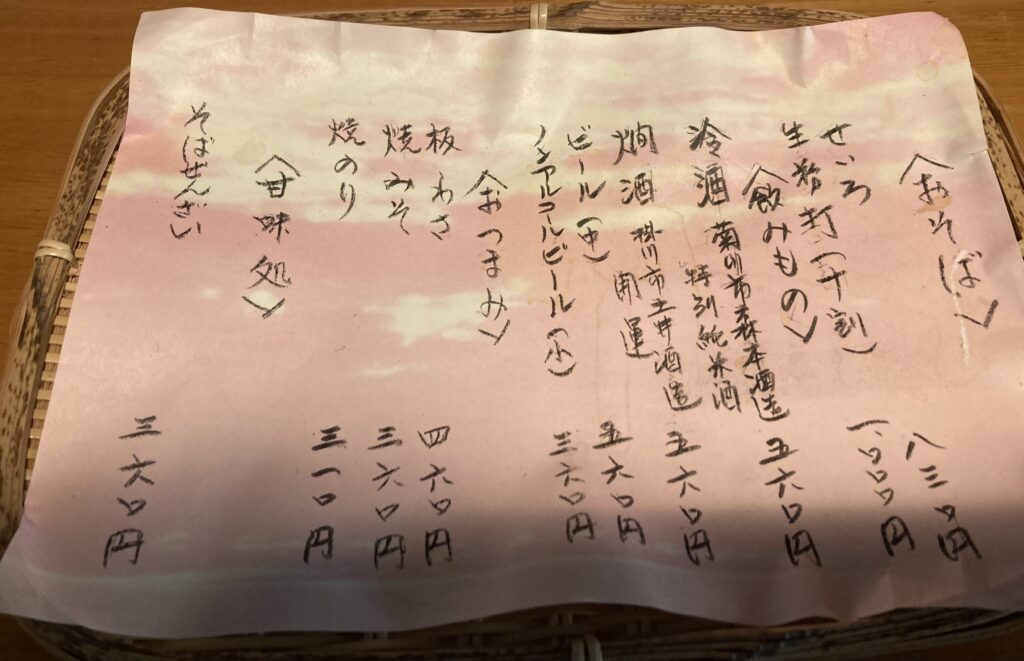 〈おそば〉
せいろ 八三〇円
生粉打(十割) 一、〇〇〇円
〈飲みもの〉
冷酒 菊川市森本酒造 特別純米酒 五六〇円
燗酒 掛川市土井酒造 開運 五六〇円
ビール(中) 五六〇円
ノンアルコールビール(小) 三六〇円
〈おつまみ〉
板わさ 四六〇円
焼みそ 三六〇円
焼のり 三一〇円
〈甘味処〉
そばぜんざい 三六〇円